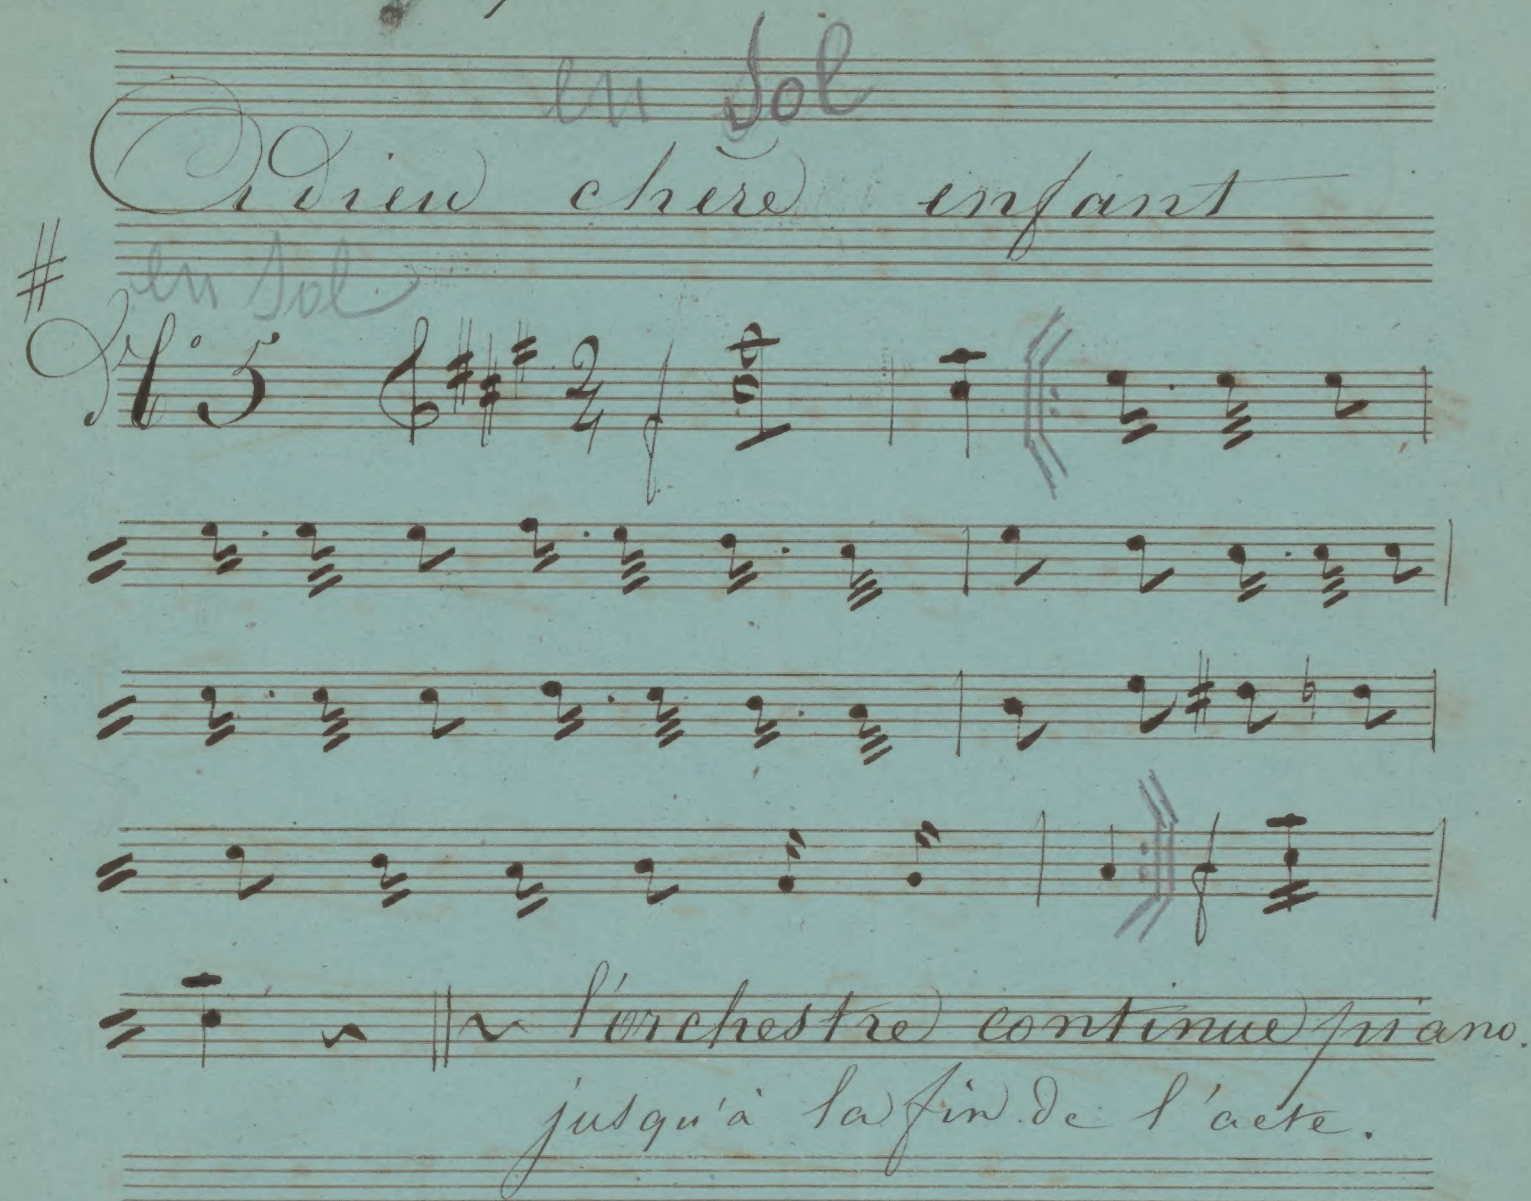 en Sol
Adieu chère enfant
en Sol
N° 5
l'orchestre continue piano.
jusqu'à la fin de l'acte.